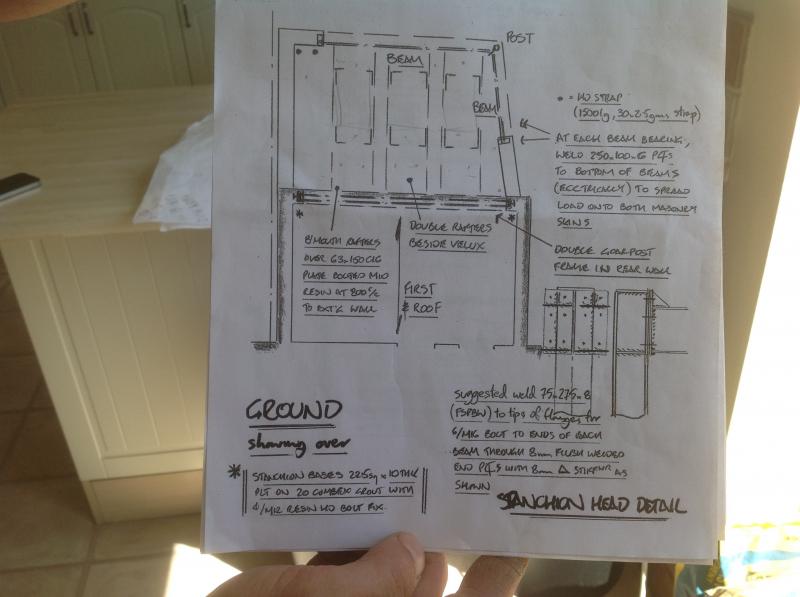 POST
BEAM
BEAM
• = HD STRAP
(1500lg, 30x2.5gms strap)
AT EACH BEAM BEARING,
WELD 250x100x6 PLs
TO BOTTOM OF BEAMS
(ECCTRICALLY) TO SPREAD
LOAD ONTO BOTH MASONRY
SKINS
DOUBLE GOALPOST
FRAME IN REAR WALL
B'MOUTH RAFTERS
OVER 63x150 C16
PLATE BOLTED M10
RESIN AT 800 c/c
TO EXT'G WALL
DOUBLE RAFTERS
BESIDE VELUX
FIRST
& ROOF
GROUND
showing over
* STANCHION BASES 225sq x 10THK
PLT ON 20 COMBEXD GROUT WITH
4/M12 RESIN HD BOLT FIX.
suggested weld 75x275x8
(FSPBW) to tips of flanges for
4/M16 BOLT TO ENDS OF EACH
BEAM THROUGH 8mm FLUSH WELDED
END PLs WITH 8mm Δ STIFFNR AS
SHOWN
STANCHION HEAD DETAIL